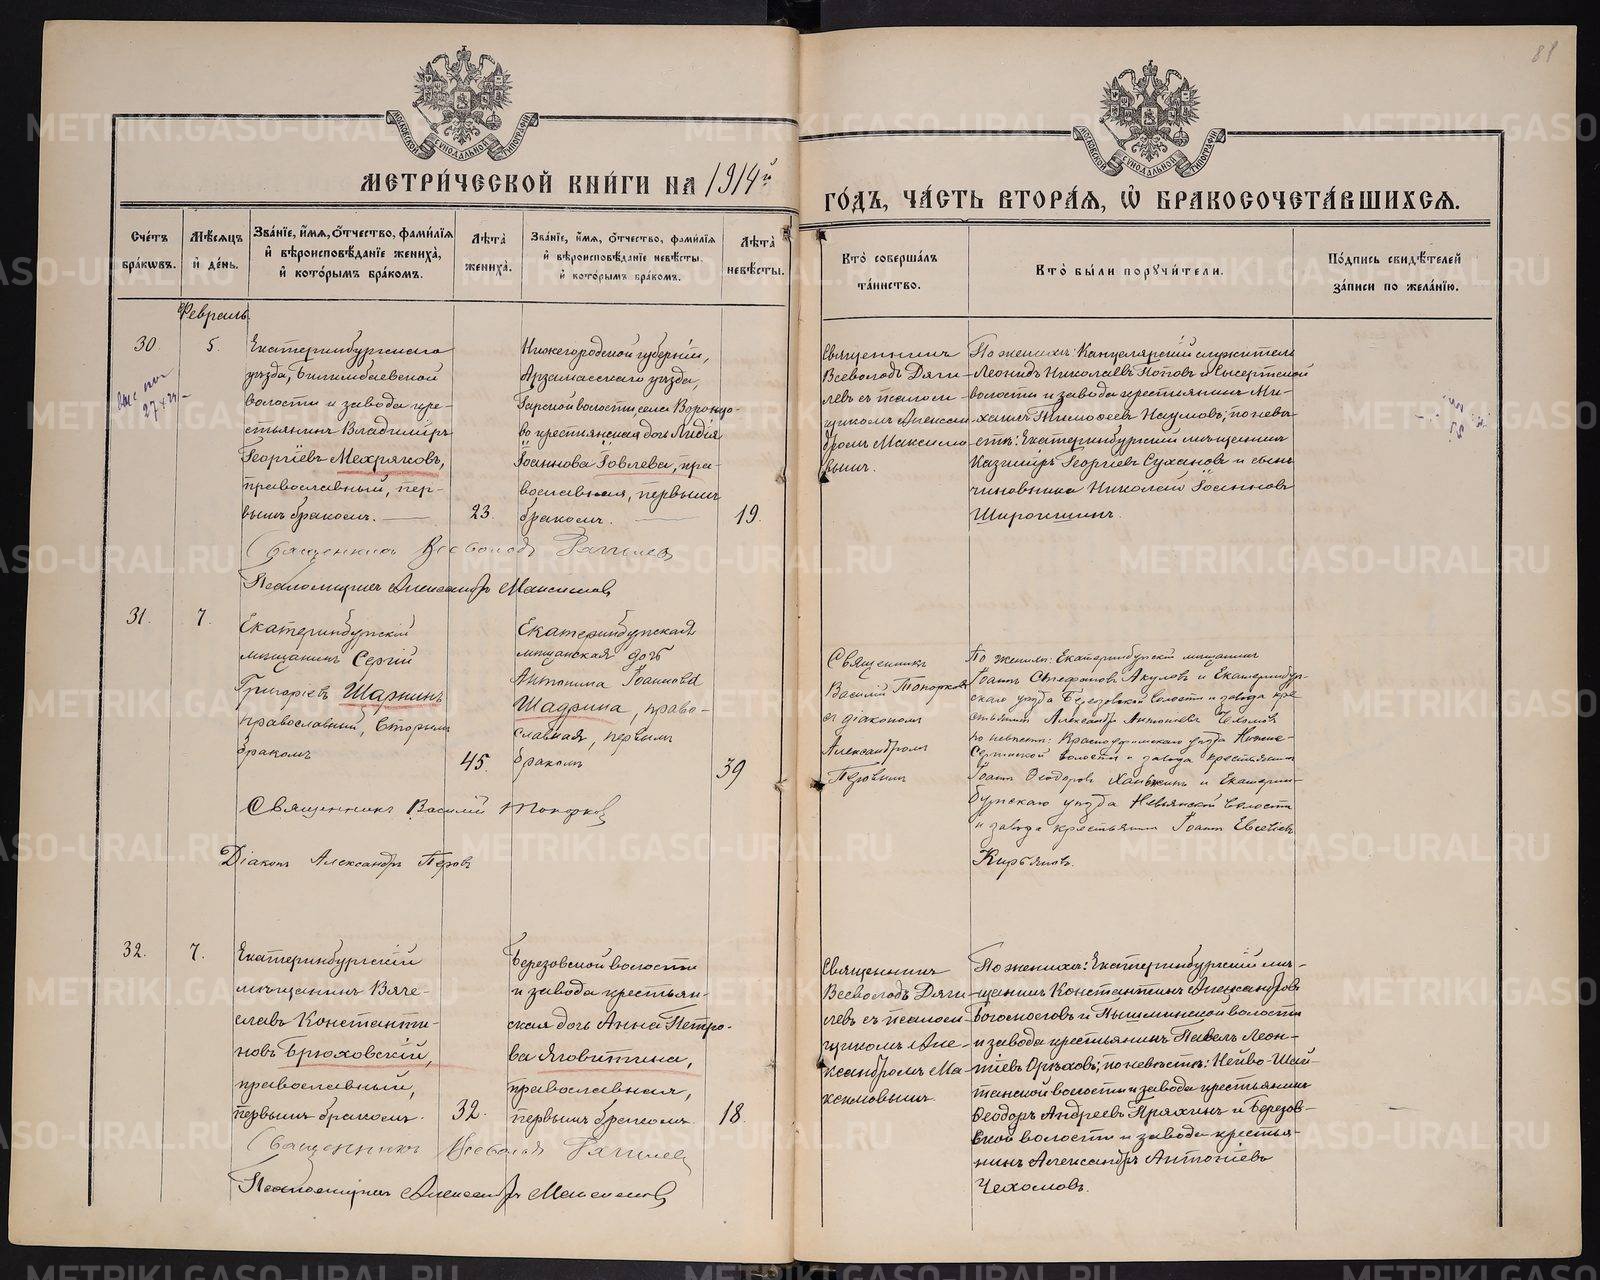 88
МОСКОВСКОЙ СѴНОДАЛЬНОЙ ТИПОГРАФІИ
МОСКОВСКОЙ СѴНОДАЛЬНОЙ ТИПОГРАФІИ
МЕТРИ́ЧЕСКОЙ КНИ́ГИ НА 1914й
ГО́ДЪ, ЧА́СТЬ ВТОРА́Ѧ, Ѽ БРАКОСОЧЕТА́ВШИХСѦ.
Сче́тъ бра́кѡвъ.
Мѣ́сѧцъ и҆ де́нь.
Зва́нїе, и҆́мѧ, ѻ҆́тчество, фами́лїѧ и҆ вѣроисповѣ́данїе жениха̀, и҆ кото́рымъ бра́комъ.
Лѣ̑та жениха̀.
Зва́нїе, и҆́мѧ, ѻ҆́тчество, фами́лїѧ и҆ вѣроисповѣ́данїе невѣ́сты, и҆ кото́рымъ бра́комъ.
Лѣ̑та невѣ́сты.
Кто̀ соверша́лъ та́инство.
Кто̀ бы́ли порꙋчи́тели.
По́дпись свидѣ́телей за́писи по жела́нїю.
Февраль.
30.
5.
Екатеринбургскаго
уѣзда, Билимбаевской
волости и завода кре-
стьянинъ Владиміръ
Георгіевъ Мехряковъ,
православный, пер-
вымъ бракомъ.
23.
Нижегородской губерніи,
Арзамасскаго уѣзда,
волости села Воронцо-
во крестьянская дочь Лидія
Іоаннова Іовлева, пра-
вославная, первымъ
бракомъ.
19.
Священникъ
Всеволодъ Дяги-
левъ съ псалом-
щикомъ Алексан-
дромъ Максимо-
вымъ.
По женихѣ: Канцелярскій служитель
Леонидъ Николаевъ Поповъ и Сысертской
волости и завода крестьянинъ Ми-
хаилъ Тимофеевъ Наумовъ; по невѣ-
стѣ: Екатеринбургскій мѣщанинъ
Казиміръ Георгіевъ Сухановъ и сынъ
чиновника Николай Іоанновъ
Широкшинъ.
Священникъ Всеволодъ Дягилевъ
Псаломщикъ Александръ Максимовъ
31.
7.
Екатеринбургскій
мѣщанинъ Сергій
Григоріевъ Шаринъ
православный, вторымъ
бракомъ
45.
Екатеринбургская
мѣщанская дочь
Антонина Іоаннова
Шадрина, право-
славная, первымъ
бракомъ
39
Священникъ
Василій Топорковъ
съ діакономъ
Александромъ
Перовымъ
По женихѣ: Екатеринбургскій мѣщанинъ
Іоаннъ Стефановъ Акуловъ и Екатеринбур-
скаго уѣзда Березовской волости и завода кре-
стьянинъ Александръ Антоніевъ Чехомовъ
по невѣстѣ: Красноуфимскаго уѣзда Нижне-
Сергинской волости и завода крестьянинъ
Іоаннъ Ѳеодоровъ и Екатерин-
бургскаго уѣзда Невьянской волости
и завода крестьянинъ Іоаннъ Евсевіевъ
Кирьяновъ.
Священникъ Василій Топорковъ
Діаконъ Александръ Перовъ
32.
7.
Екатеринбургскій
мѣщанинъ Вяче-
славъ Константи-
новъ Брюховскій,
православный,
первымъ бракомъ.
32.
Березовской волости
и завода крестьян-
ская дочь Анна Петро-
ва Яговитина,
православная,
первымъ бракомъ.
18.
Священникъ
Всеволодъ Дяги-
левъ съ псалом-
щикомъ Але-
ксандромъ Ма-
ксимовымъ.
По женихѣ: Екатеринбургскій мѣ-
щанинъ Константинъ Александровъ
Богомоловъ и Пышминской волости
и завода крестьянинъ Павелъ Леон-
тіевъ Орѣховъ; по невѣстѣ: Нейво-Шай-
танской волости и завода крестьянинъ
Ѳеодоръ Андреевъ Пряхинъ и Березов-
ской волости и завода крестья-
нинъ Александръ Антоніевъ
Чехомовъ.
Священникъ Всеволодъ Дягилевъ
Псаломщикъ Александръ Максимовъ
METRIKI.GASO-URAL.RU